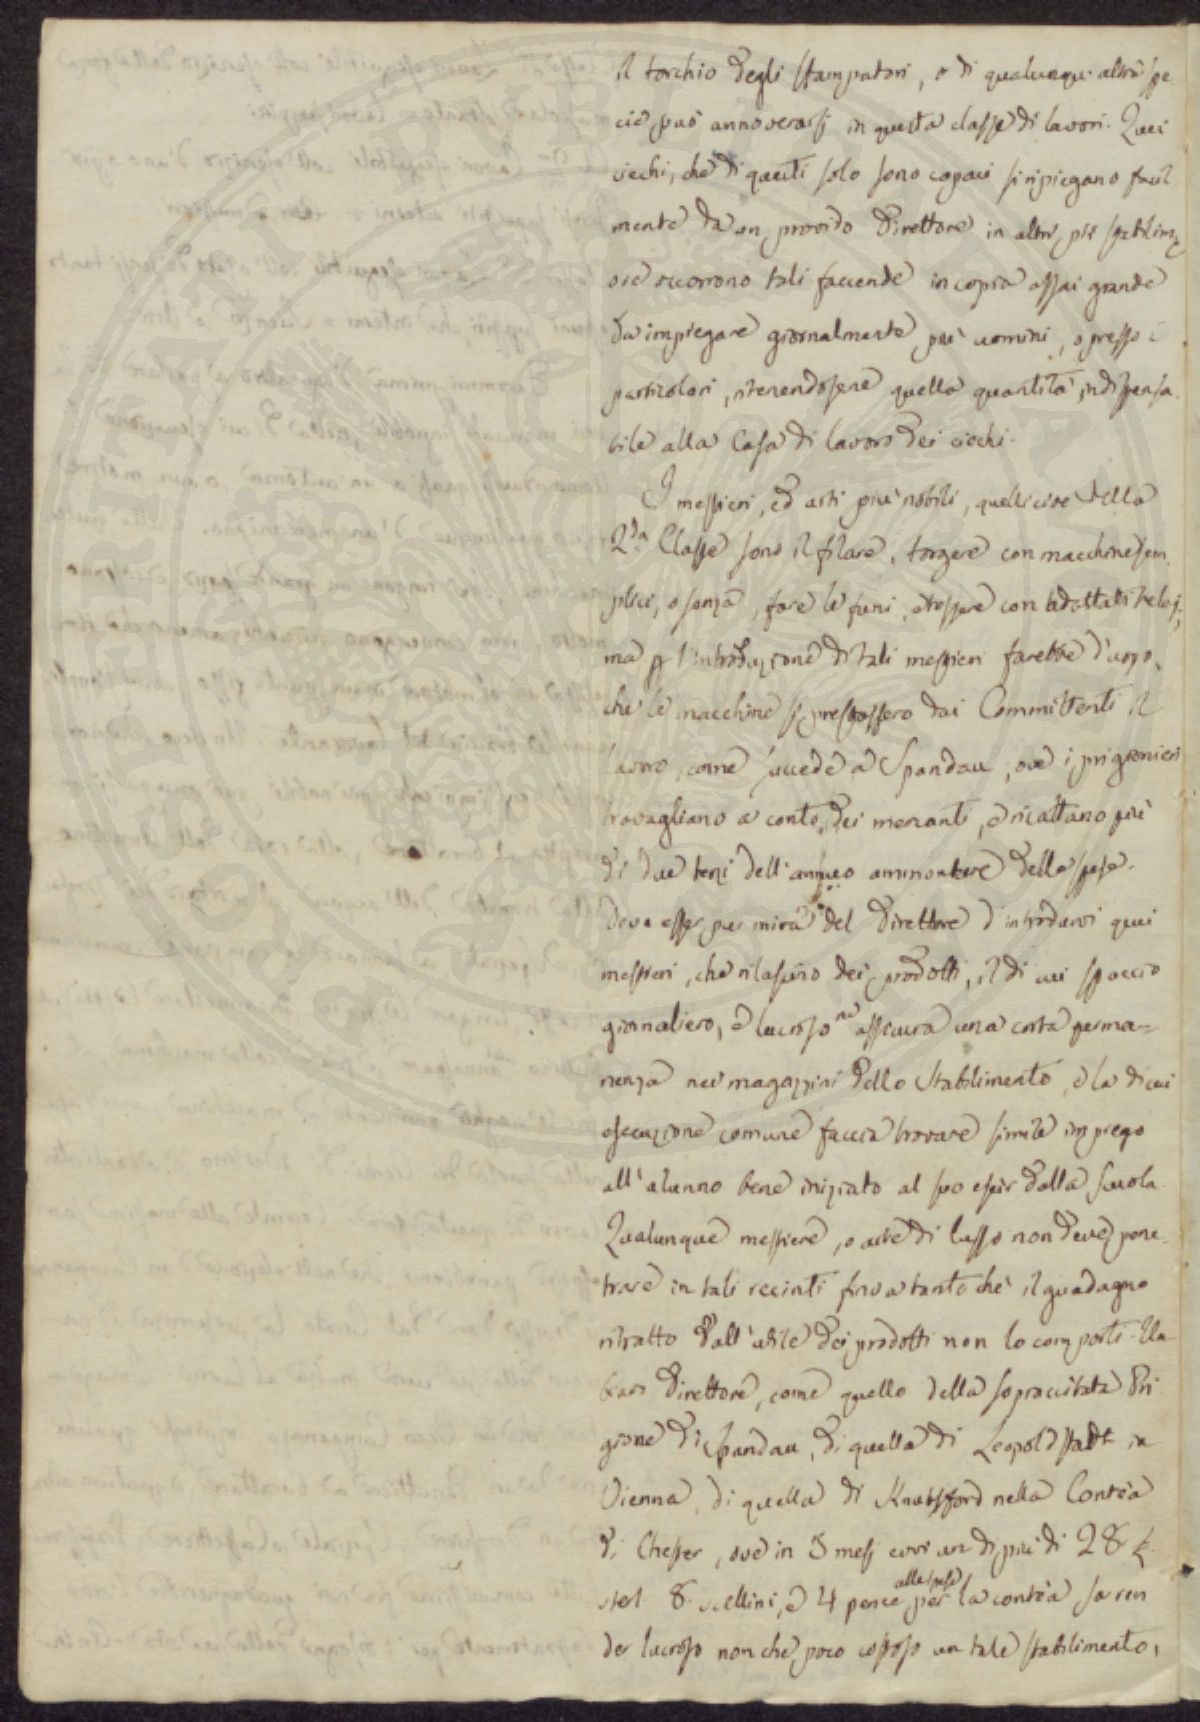 il torchio degli stampatori, o di qualunque altra spe-
cie può annoverarsi in questa classe di lavori. Quei
ciechi, che di questi solo sono capaci si ripiegano facil
mente da un provido Direttore in altri più sublimi,
ove occorrono tali faccende in copia assai grande
da impiegare giornalmente più uomini, o presso i
particolari, ritenendosene quella quantità indispensa-
bile alla Casa di lavoro dei ciechi.
I mestieri, ed arti più nobili, quelli cioe della
2da Classe sono il filare, torgere con macchine sem-
plici, o senza, fare le funi, e tessere con adottati telaj,
ma p l'introduzione di tali mestieri farebbe d'uopo,
che le macchine si prestassero dai Committenti il
lavoro, come succede a Spandau, ove i prigionieri
travagliano a conto dei mercanti, e ricattano più
di due terzi dell'annuo ammontare delle spese.
Deve esser pur mira del Direttore d'introdurvi quei
mestieri, che rilascino dei prodotti, il di cui spaccio
giornaliero, e lucroso ne assicura una corta perma-
nenza nei magazzini dello Stabilimento, e la di cui
esecuzione comune faccia trovare simile impiego
all'alunno bene iniziato al suo escir dalla scuola.
Qualunque mestiere, o arte di lusso non deve pene-
trare in tali recinti fino a tanto chè il guadagno
ritratto dall'utile dei prodotti non lo comporti. Un
bravo Direttore, come quello della sopraccitata Pri
gione di Spandau, di quella di Leopoldstadt in
Vienna, di quella di Knutsford nella Contea
di Chester, ove in 5 mesi di più di 28 £
sterl. 8. scellini, e 4 pence alle spese per la contèa sa ren
der lucroso non che poco costoso un tale stabilimento,